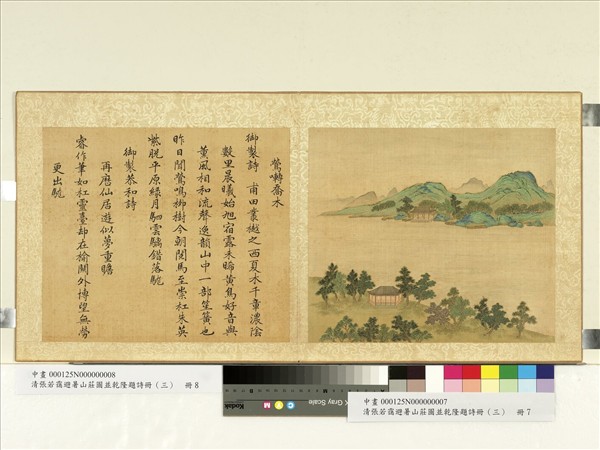 鶯囀喬木
御製詩 甫田叢樾之西夏木千章濃陰
數里晨曦始旭宿露未晞黃鳥好音與
薰風相和流聲逸韻山中一部笙簧也
昨日聞鶯鳴柳樹今朝閱馬至崇杠朱英
紫脫平原綠月駟雲驦錯落駹
御製恭和詩
再歷仙居遊似夢重瞻
睿作筆如杠靈臺却在榆關外博望無勞
更出駹
中畫 000125N000000008
清張若靄避暑山莊圖並乾隆題詩冊（三） 冊8
Kodak Gray Scale
中畫 000125N000000007
清張若靄避暑山莊圖並乾隆題詩冊（三） 冊7